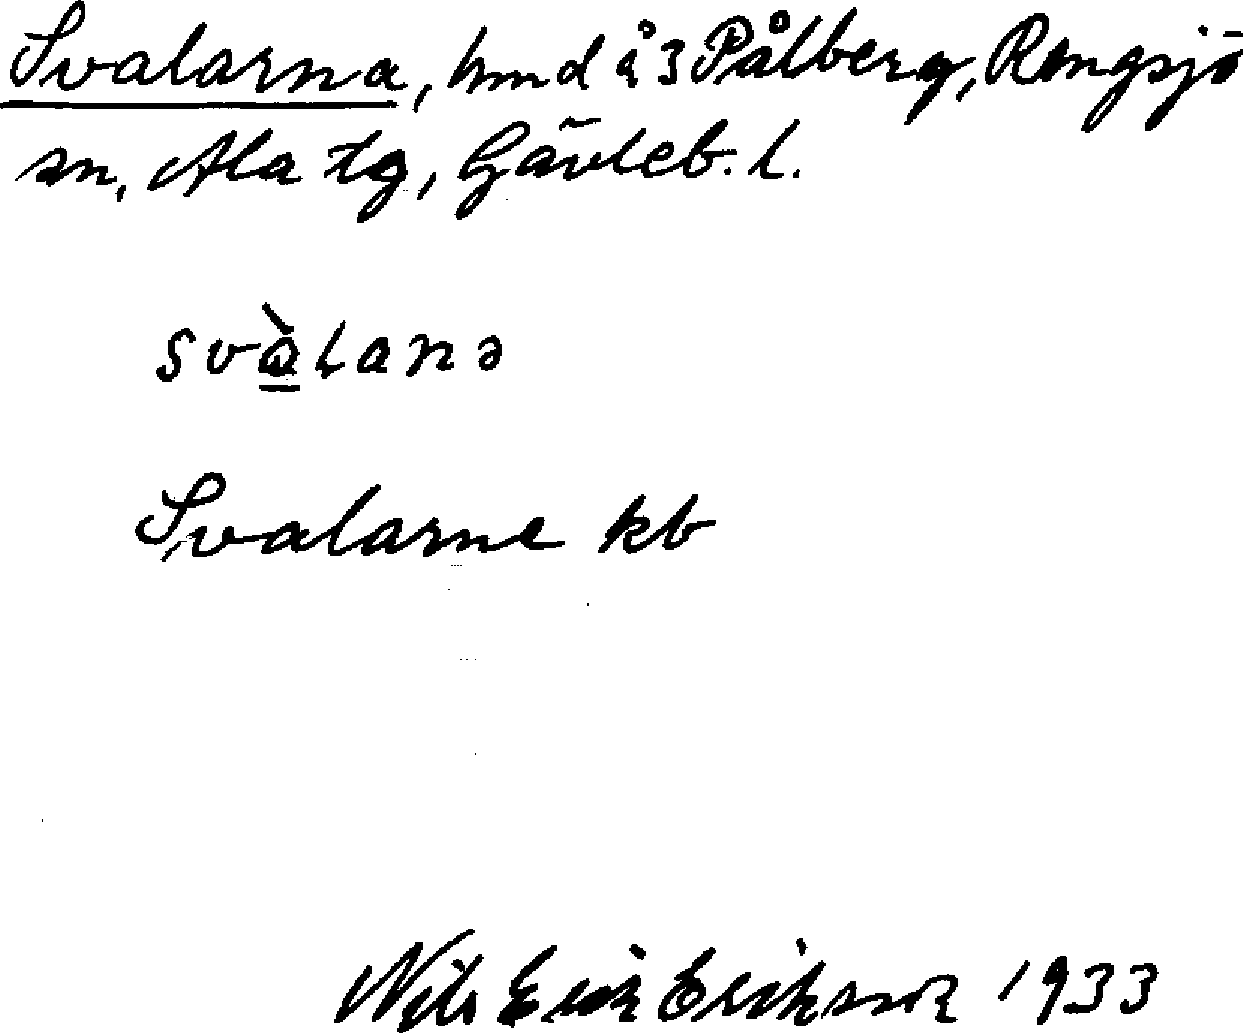 Svalarna, hmd å 3 Pålberg, Rengsjö
sn, Ala tg, Gävleb. l.
svàlanə
Svalarne kb
Nils Erik Erikson 1933